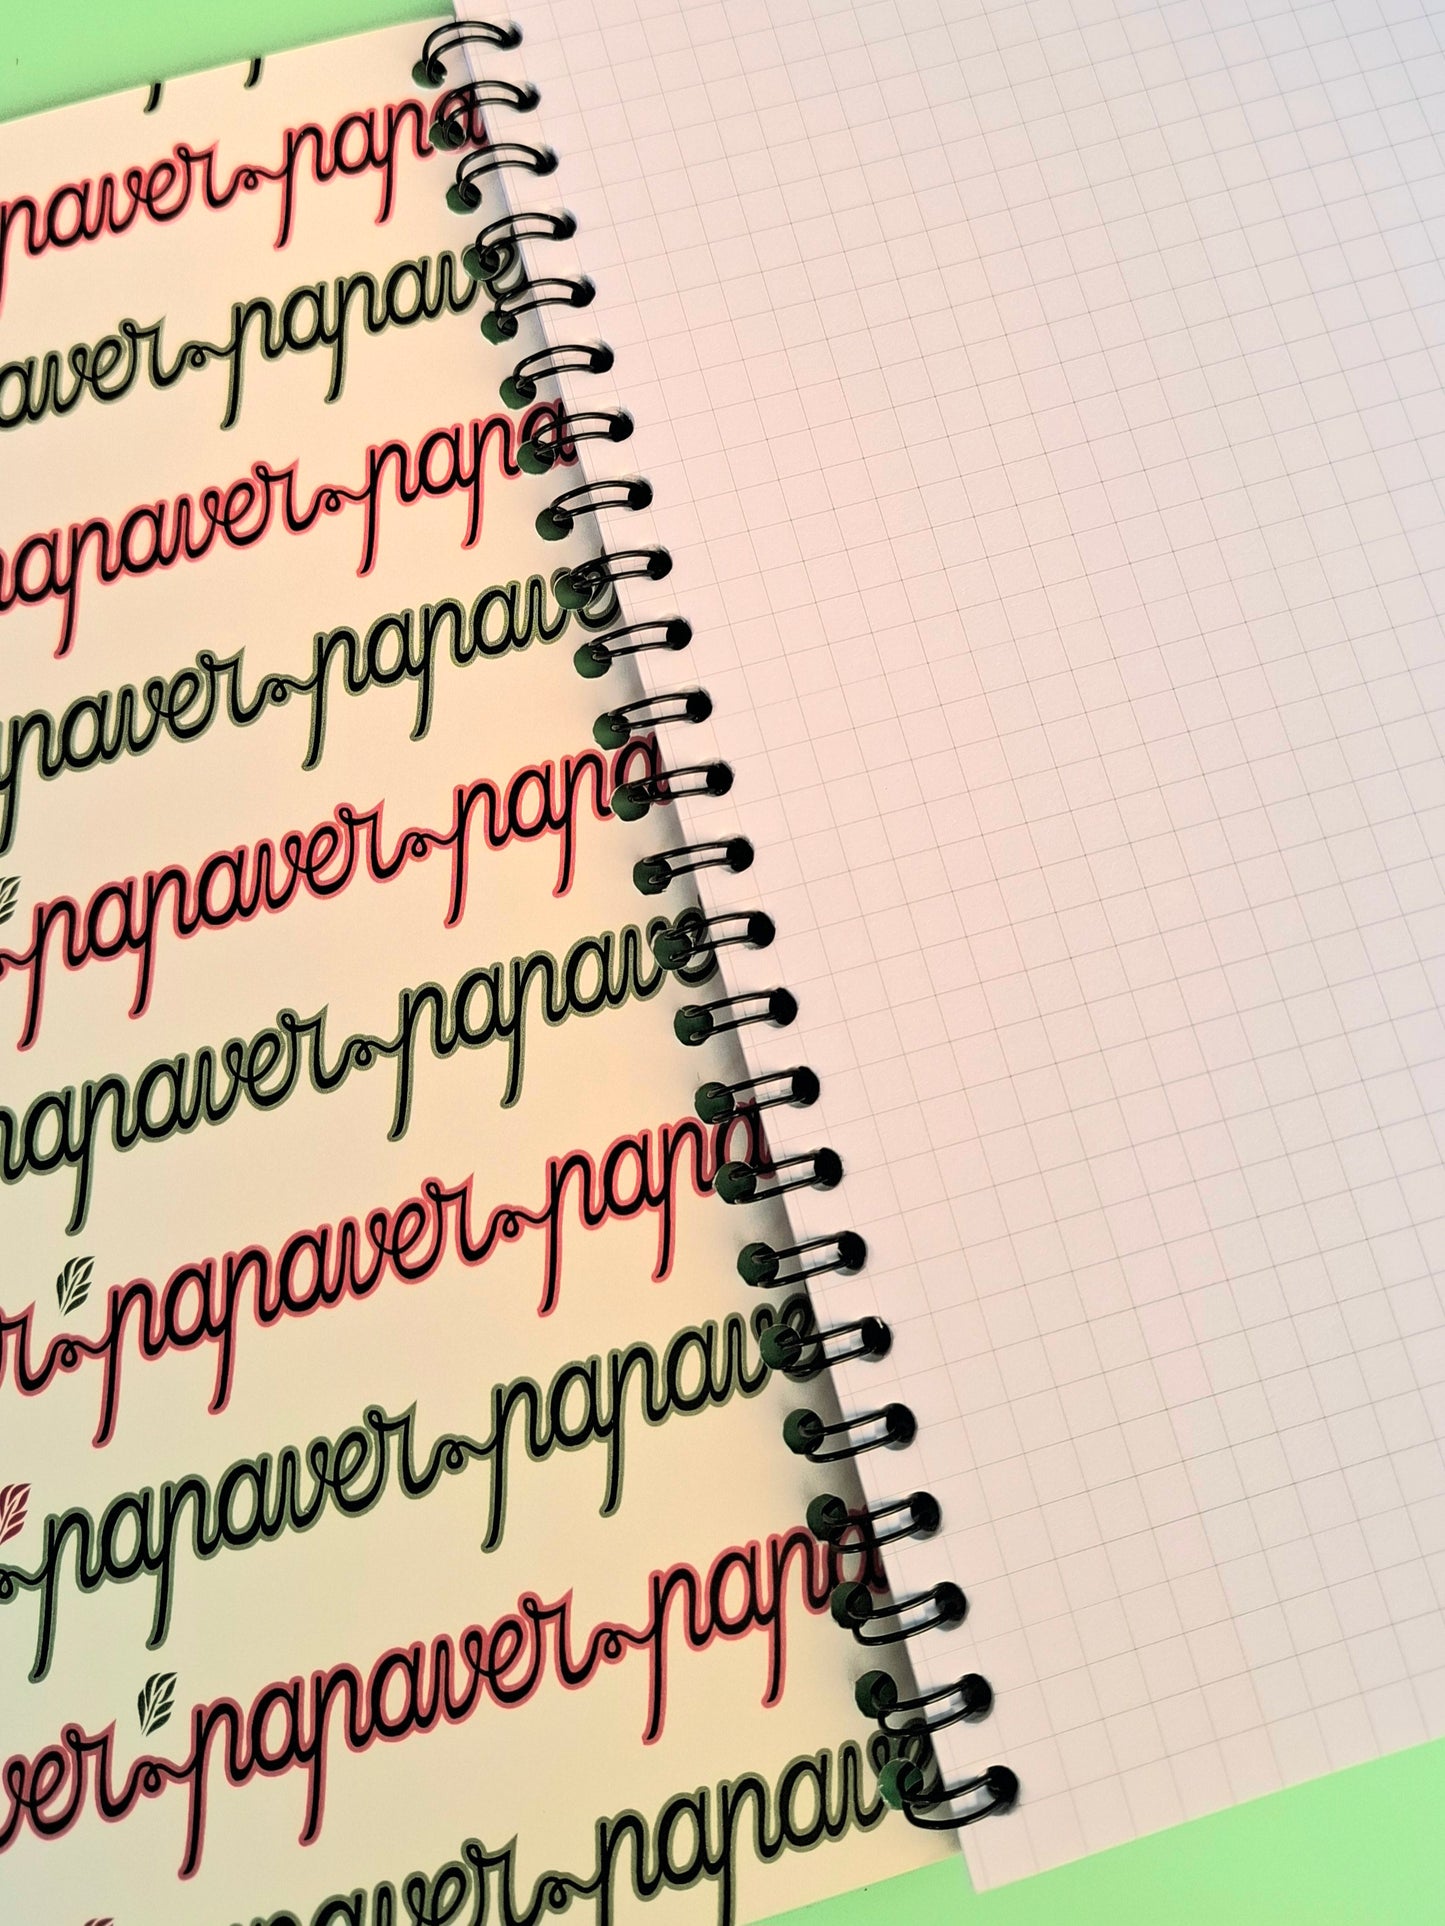 paver papa
aver papave
papaver papa
paver papave
papaver papa
papaver papave
r papaver papa
papaver papave
ver papaver papa
papaver papave